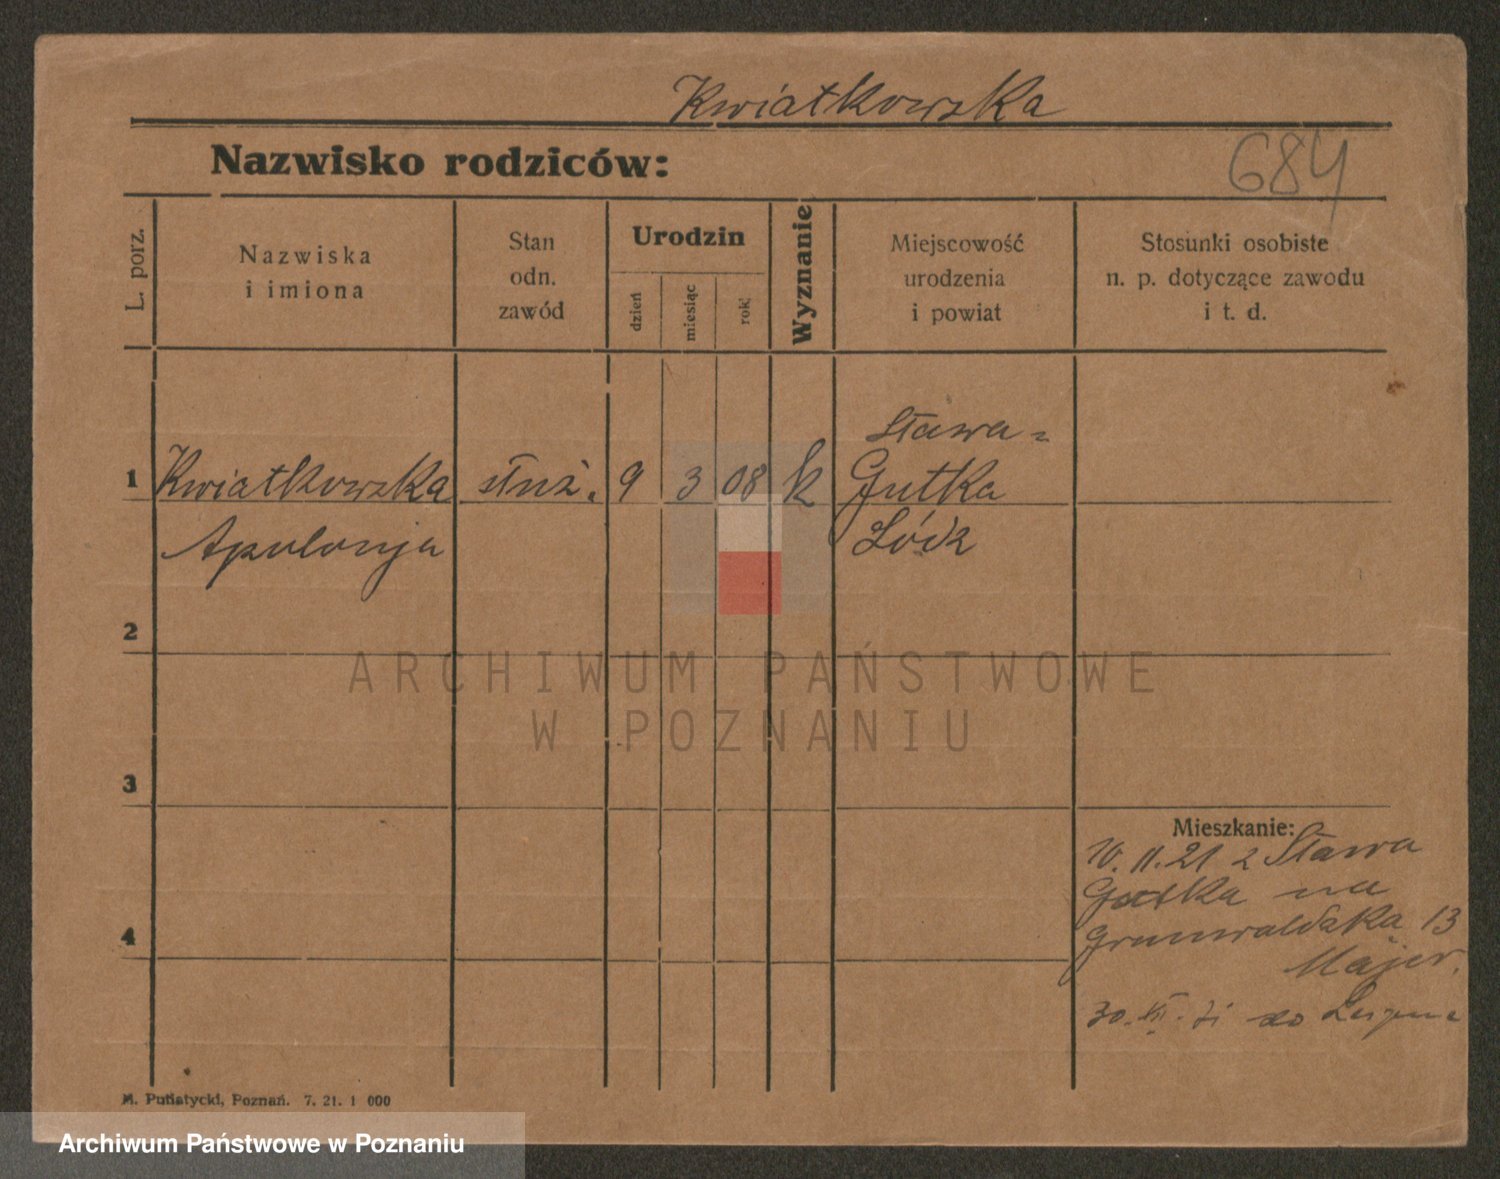 Kwiatkowska
Nazwisko rodziców:
684
L. porz.
Nazwiska
i imiona
Stan
odn.
zawód
Urodzin
dzień
miesiąc
rok
Wyznanie
Miejscowość
urodzenia
i powiat
Stosunki osobiste
n. p. dotyczące zawodu
i t. d.
1
Kwiatkowska
Apolonja
służ.
9
3
08
k
Sława-
Gutka
Łódz
2
3
4
Mieszkanie:
10. 11. 21 z Sława
Gutka na
Grunwaldska 13
Majer.
30. VII. do
M. Putiatycki, Poznań. 7. 21. 1 000
ARCHIWUM PAŃSTWOWE
W POZNANIU
Archiwum Państwowe w Poznaniu